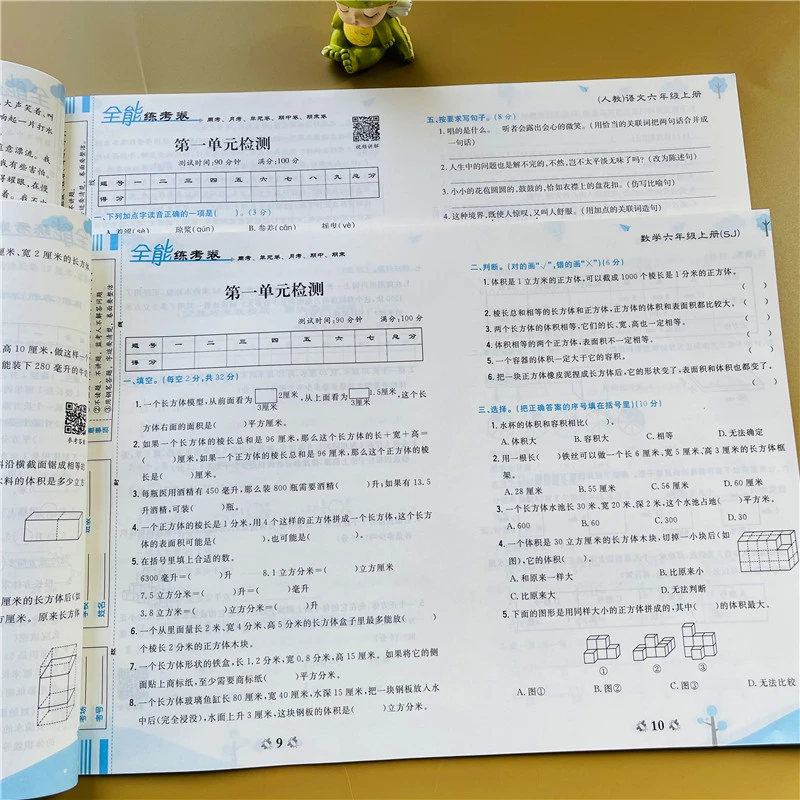 大声笑着,叫
全能练考卷 周考、月考、单元卷、期中卷、期末卷
第一单元检测
测试时间:90分钟 满分:100分
视频讲解
题号 一 二 三 四 五 六 七 八 九 总分
得分
一、下列加点字读音正确的一项是( )。(3分)
(人教)语文六年级上册
五、按要求写句子。(8分)
1.唱的是什么。 听者会露出会心的微笑。(用恰当的关联词把两句话合并成
一句话)
2.人生中的问题也是解不完的,不然,岂不太平淡无味了吗?(改为陈述句)
3.小小的花苞圆圆的,鼓鼓的,恰如衣襟上的盘花扣。(仿写比喻句)
4.这种境界,既使人惊叹,又叫人舒服。(用加点的关联词造句)
厘米、宽2厘米的长方体
高10厘米,做这样一个
能装下280毫升的牛
参考答案
料沿横截面锯成相等的
木料的体积是多少立方
厘米的长方体后(如
方厘米。原来长方体
学校
姓名
考场
考号
全能练考卷 周考、单元卷、月考、期中、期末
第一单元检测
测试时间:90分钟 满分:100分
题号 一 二 三 四 五 六 总分
得分
一、填空。(每空2分,共32分)
1.一个长方体模型,从前面看为 2厘米 3厘米 ,从上面看为 1.5厘米 3厘米 ,这个长
方体右面的面积是( )平方厘米。
2.如果一个长方体的棱长总和是96厘米,那么这个长方体的长+宽+高=
( )厘米。如果一个正方体的棱长总和是96厘米,那么这个正方体的棱
长是( )厘米。
3.每瓶医用酒精有450毫升,那么装800瓶需要酒精( )升;如果有13.5
升酒精,可装( )瓶。
4.一个正方体的棱长是1分米,用4个这样的正方体拼成一个长方体,这个长方
体的表面积可能是( ),也可能是( )。
5.在括号里填上合适的数。
6300毫升=( )升 8.1立方分米=( )立方厘米
7.5立方分米=( )升=( )毫升
3.8立方米=( )立方分米=( )升
6.一个从里面量长2米、宽4分米、高5分米的长方体盒子里最多能放( )
个棱长2分米的正方体木块。
7.一个长方体形状的铁盒,长1.2分米,宽0.8分米,高15厘米。如果将它的侧
面贴上商标纸,至少需要商标纸( )平方分米。
8.一个长方体玻璃鱼缸长80厘米,宽40厘米,水深15厘米,把一块钢板放入水
中后(完全浸没),水面上升3厘米,这块钢板的体积是( )立方分米。
9
数学六年级上册(SJ)
二、判断。(对的画“√”,错的画“×”)(6分)
1.体积是1立方米的正方体,可以截成1000个棱长是1分米的正方体。
( )
2.棱长总和相等的长方体和正方体,正方体的体积和表面积都比较大。( )
3.两个长方体的体积相等,它们的长、宽、高也一定相等。 ( )
4.体积相等的两个正方体,表面积不一定相等。 ( )
5.一个容器的体积一定大于它的容积。 ( )
6.把一块正方体橡皮泥捏成长方体后,它的形状变了,表面积和体积也都变了。
( )
三、选择。(把正确答案的序号填在括号里)(10分)
1.水杯的体积和容积相比( )。
A.体积大 B.容积大 C.相等 D.无法确定
2.用一根长( )铁丝可以做一个长6厘米、宽5厘米、高3厘米的长方体框
架。
A.28厘米 B.55厘米 C.56厘米 D.60厘米
3.一个长方体水池长30米,宽20米,深2米,这个水池占地( )平方米。
A.600 B.60 C.300 D.30
4.一个体积是30立方厘米的长方体木块,切掉一小块后(如
图),它的体积( )。
A.和原来一样大 B.比原来小
C.比原来大 D.无法判断
5.下面的图形是用同样大小的正方体拼成的,其中( )的体积最大。
① ② ③
A.图① B.图② C.图③ D.无法比较
10